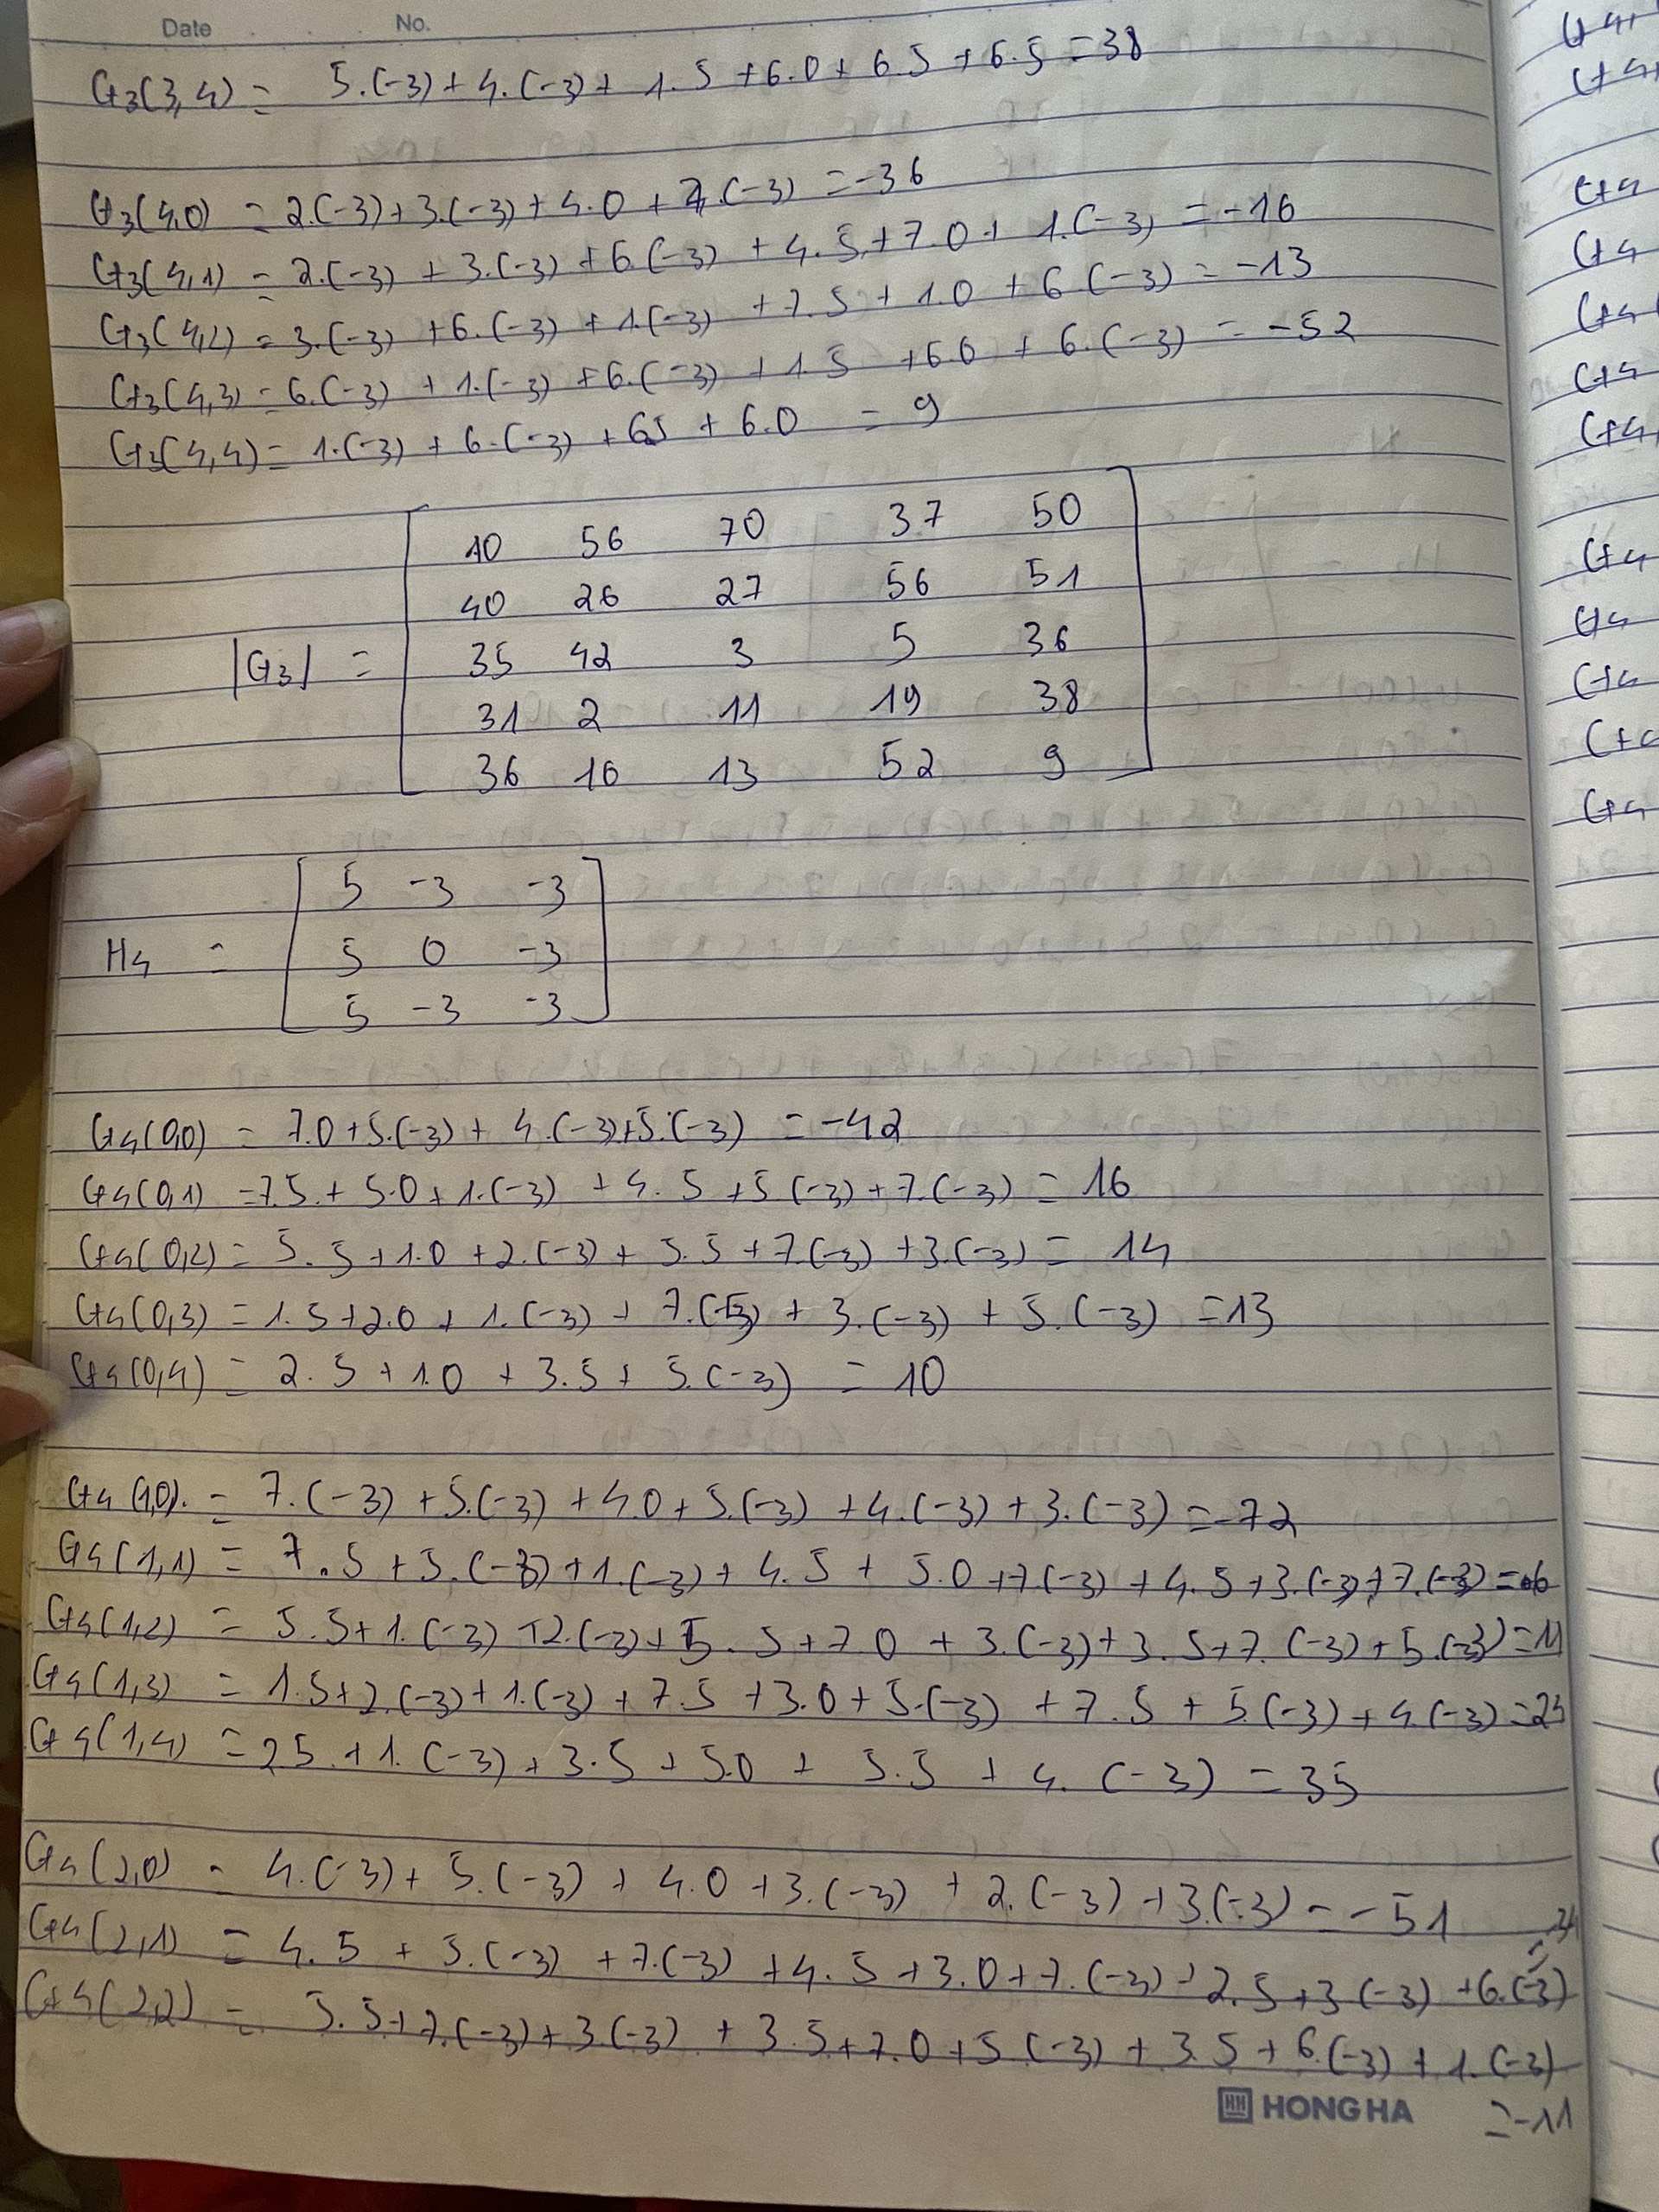 Date No.
G3(3,4) = 5.(-3)+4.(-3)+ 1.5 +6.0+ 6.5 +6.5 =38
G3(4,0) = 2.(-3)+3.(-3)+4.0 +7.(-3) =-36
G3(4,1) = 2.(-3) + 3.(-3) +6.(-3) + 4.5+7.0+ 1.(-3) = -16
G3(4,2) = 3.(-3) +6.(-3) +1.(-3) +7.5 + 1.0 + 6(-3) = -13
G3(4,3) = 6.(-3) + 1.(-3) +6.(-3) + 1.5 +6.0 + 6.(-3) = -52
G3(4,4) = 1.(-3) + 6.(-3) + 6.5 + 6.0 = 9
40 56 70 37 50
40 26 27 56 51
|G3| = 35 42 3 5 36
31 2 11 19 38
36 16 13 52 9
5 -3 -3
H4 = 5 0 -3
5 -3 -3
G4(0,0) = 7.0+5.(-3)+ 4.(-3)+5.(-3) =-42
G4(0,1) =7.5.+ 5.0+1.(-3) +4. 5 +5.(-3)+7.(-3) = 16
G4(0,2) = 5.5 +1.0 +2.(-3)+ 5.5 +7.(-3) +3.(-3) = 14
G4(0,3) = 1.5+2.0 + 1.(-3) + 7. + 3.(-3) + 5.(-3) =13
G4(0,4) = 2.5 +1.0 + 3.5 + 5.(-3) = 10
G4(1,0). = 7.(-3) +5.(-3) +4.0 + 5.(-3) +4.(-3) + 3.(-3) =-72
G4(1,1) = 7.5 +5.(-3) +1.(-3) + 4.5 + 5.0 +7(-3) + 4.5 +3.(-3)+7.(-3) =
G4(1,2) = 5.5+1.(-3) +2.(-3)+ 5.5 +7.0 + 3.(-3)+3.5+7.(-3)+5.(-3) =11
G4(1,3) = 1.5+2.(-3)+1.(-3) + 7.5 +3.0+5.(-3) + 7.5 + 5.(-3)+4.(-3) =24
G4(1,4) = 2.5.+1.(-3) + 3.5 + 5.0 + 5.5 + 4.(-3) = 35
G4(2,0) = 4.(-3)+ 5.(-3) + 4.0 +3.(-3) + 2.(-3) +3.(-3) = -51
G4(2,1) = 4.5 + 5.(-3) +7.(-3) +4.5+3.0+7.(-3)+2.5+3(-3) +6.(-3)
G4(2,2) = 5.5+7.(-3)+3(-3) + 3.5+7.0+5(-3) + 3.5+6.(-3) + 1.(-3)
=-11
HONG HA